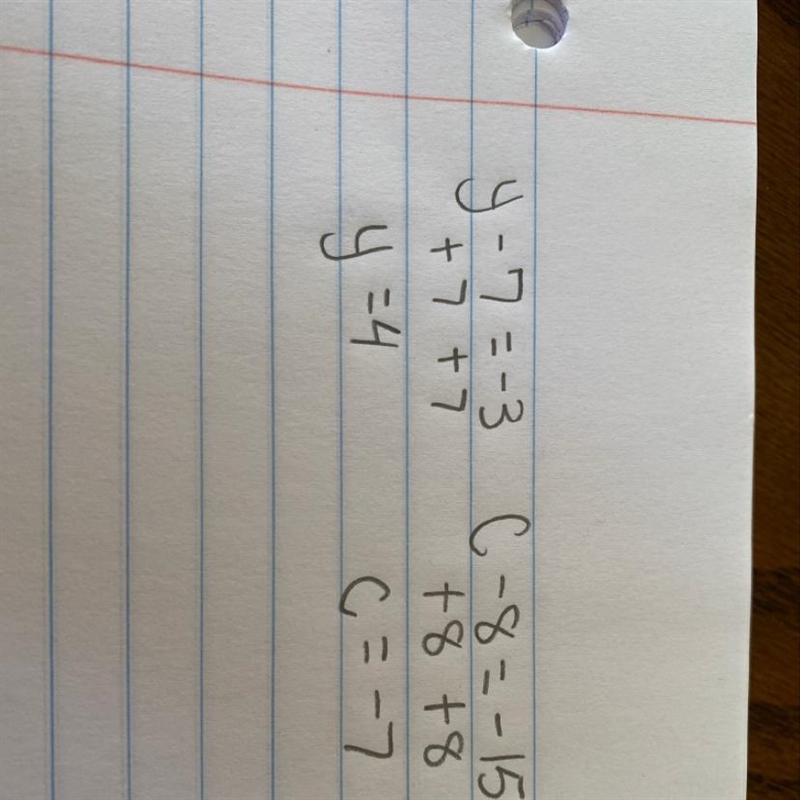 y - 7 = -3
+7 +7
y = 4
C - 8 = -15
+8 +8
C = -7